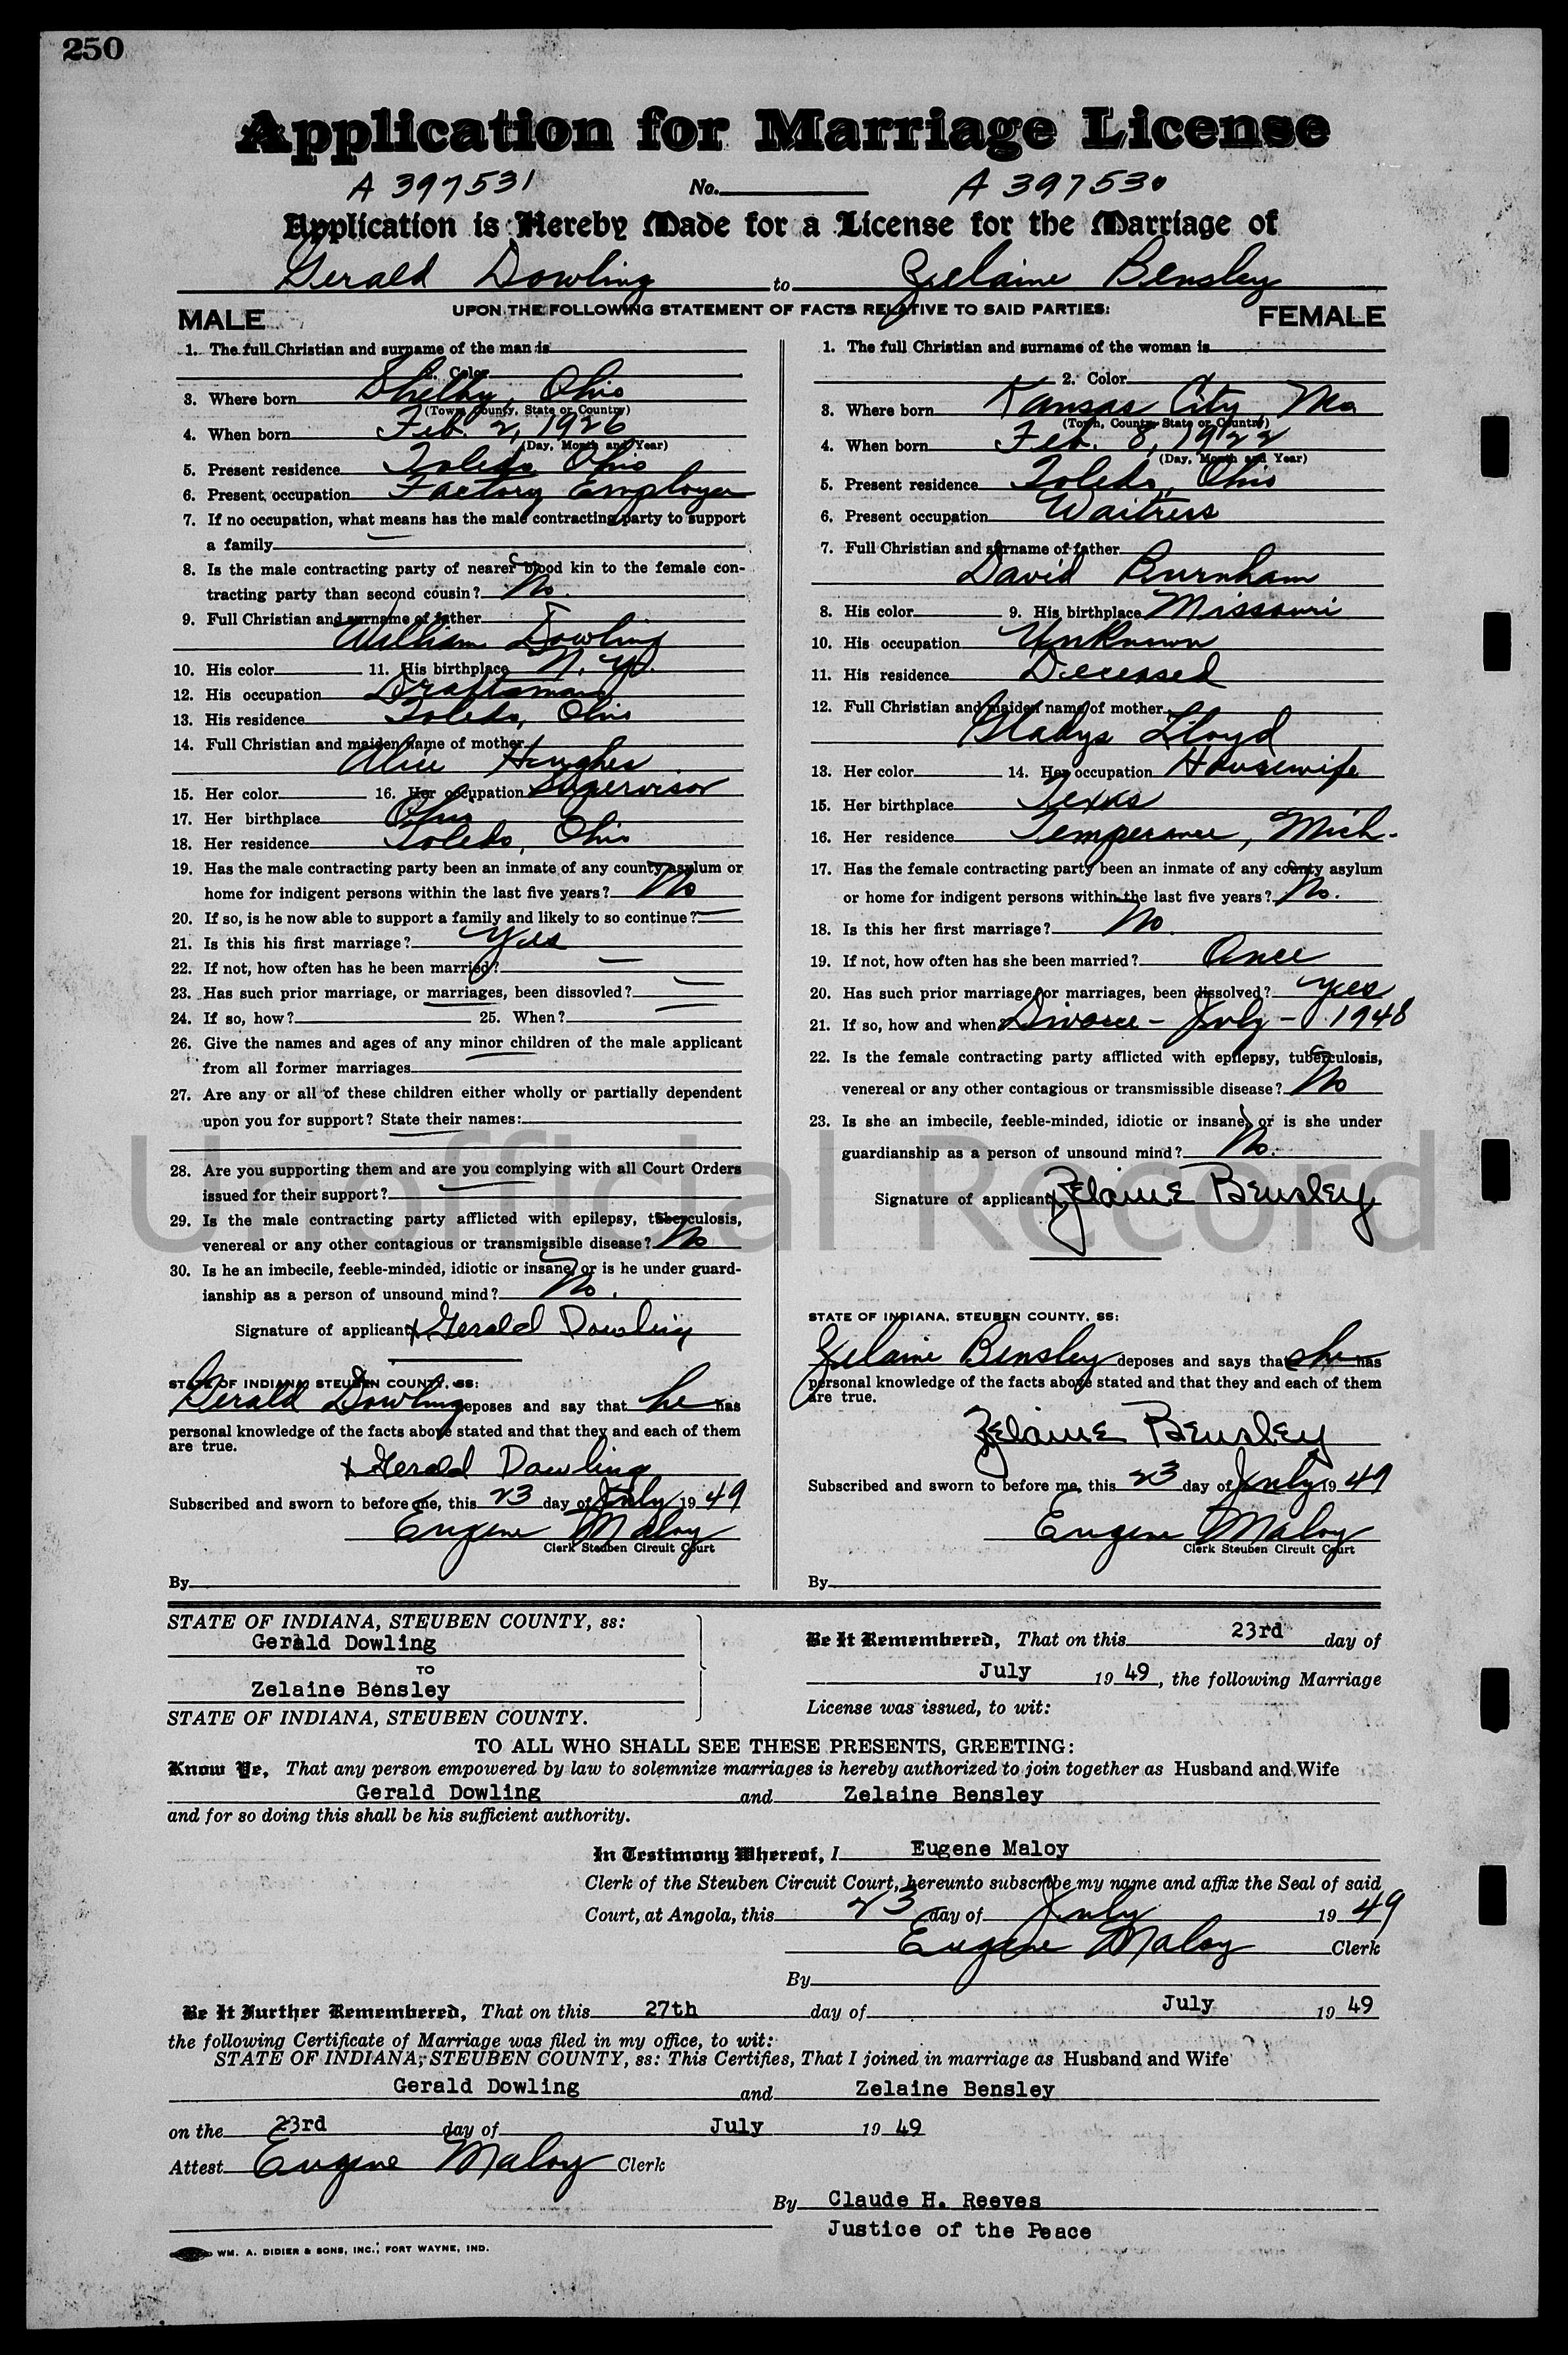 250
Application for Marriage License
A 397531 No. A 397530
Application is Hereby Made for a License for the Marriage of
Gerald Dowling to Zelaine Bensley
UPON THE FOLLOWING STATEMENT OF FACTS RELATIVE TO SAID PARTIES:
MALE
1. The full Christian and surname of the man is
2. Color
3. Where born Shelby, Ohio
(Town, County, State or Country)
4. When born Feb. 2, 1926
(Day, Month and Year)
5. Present residence Toledo, Ohio
6. Present occupation Factory Employee
7. If no occupation, what means has the male contracting party to support
a family —
8. Is the male contracting party of nearer blood kin to the female con-
tracting party than second cousin? No.
9. Full Christian and surname of father
William Dowling
10. His color 11. His birthplace N. Y.
12. His occupation Draftsman
13. His residence Toledo, Ohio
14. Full Christian and maiden name of mother
Alice Hughes
15. Her color 16. Her occupation Supervisor
17. Her birthplace Ohio
18. Her residence Toledo, Ohio
19. Has the male contracting party been an inmate of any county asylum or
home for indigent persons within the last five years? No
20. If so, is he now able to support a family and likely to so continue? —
21. Is this his first marriage? Yes
22. If not, how often has he been married? —
23. Has such prior marriage, or marriages, been dissovled? —
24. If so, how? — 25. When? —
26. Give the names and ages of any minor children of the male applicant
from all former marriages —
27. Are any or all of these children either wholly or partially dependent
upon you for support? State their names: —
28. Are you supporting them and are you complying with all Court Orders
issued for their support? —
29. Is the male contracting party afflicted with epilepsy, tuberculosis,
venereal or any other contagious or transmissible disease? No
30. Is he an imbecile, feeble-minded, idiotic or insane, or is he under guard-
ianship as a person of unsound mind? No.
Signature of applicant x Gerald Dowling
STATE OF INDIANA, STEUBEN COUNTY, SS:
Gerald Dowling deposes and say that he has
personal knowledge of the facts above stated and that they and each of them
are true.
x Gerald Dowling
Subscribed and sworn to before me, this 23 day of July 1949
Eugene Maloy
Clerk Steuben Circuit Court
By
FEMALE
1. The full Christian and surname of the woman is
2. Color
3. Where born Kansas City Mo
(Town, County, State or Country)
4. When born Feb. 8, 1922
(Day, Month and Year)
5. Present residence Toledo, Ohio
6. Present occupation Waitress
7. Full Christian and surname of father
David Burnham
8. His color 9. His birthplace Missouri
10. His occupation Unknown
11. His residence Deceased
12. Full Christian and maiden name of mother
Gladys Lloyd
13. Her color 14. Her occupation Housewife
15. Her birthplace Texas
16. Her residence Temperance, Mich.
17. Has the female contracting party been an inmate of any county asylum
or home for indigent persons within the last five years? No.
18. Is this her first marriage? No
19. If not, how often has she been married? Once
20. Has such prior marriage, or marriages, been dissolved? Yes
21. If so, how and when? Divorce - July - 1948
22. Is the female contracting party afflicted with epilepsy, tuberculosis,
venereal or any other contagious or transmissible disease? No
23. Is she an imbecile, feeble-minded, idiotic or insane, or is she under
guardianship as a person of unsound mind? No.
Signature of applicant x Zelaine Bensley
STATE OF INDIANA, STEUBEN COUNTY, SS:
Zelaine Bensley deposes and says that she has
personal knowledge of the facts above stated and that they and each of them
are true.
Zelaine Bensley
Subscribed and sworn to before me, this 23 day of July 1949
Eugene Maloy
Clerk Steuben Circuit Court
By
Unofficial Record
STATE OF INDIANA, STEUBEN COUNTY, ss:
Gerald Dowling
TO
Zelaine Bensley
STATE OF INDIANA, STEUBEN COUNTY.
Be It Remembered, That on this 23rd day of
July 1949, the following Marriage
License was issued, to wit:
TO ALL WHO SHALL SEE THESE PRESENTS, GREETING:
Know Ye, That any person empowered by law to solemnize marriages is hereby authorized to join together as Husband and Wife
Gerald Dowling and Zelaine Bensley
and for so doing this shall be his sufficient authority.
In Testimony Whereof, I Eugene Maloy
Clerk of the Steuben Circuit Court, hereunto subscribe my name and affix the Seal of said
Court, at Angola, this 23 day of July 1949
Eugene Maloy Clerk
By
Be It Further Remembered, That on this 27th day of July 1949
the following Certificate of Marriage was filed in my office, to wit:
STATE OF INDIANA, STEUBEN COUNTY, ss: This Certifies, That I joined in marriage as Husband and Wife
Gerald Dowling and Zelaine Bensley
on the 23rd day of July 1949
Attest Eugene Maloy Clerk
By Claude H. Reeves
Justice of the Peace
WM. A. DIDIER & SONS, INC., FORT WAYNE, IND.